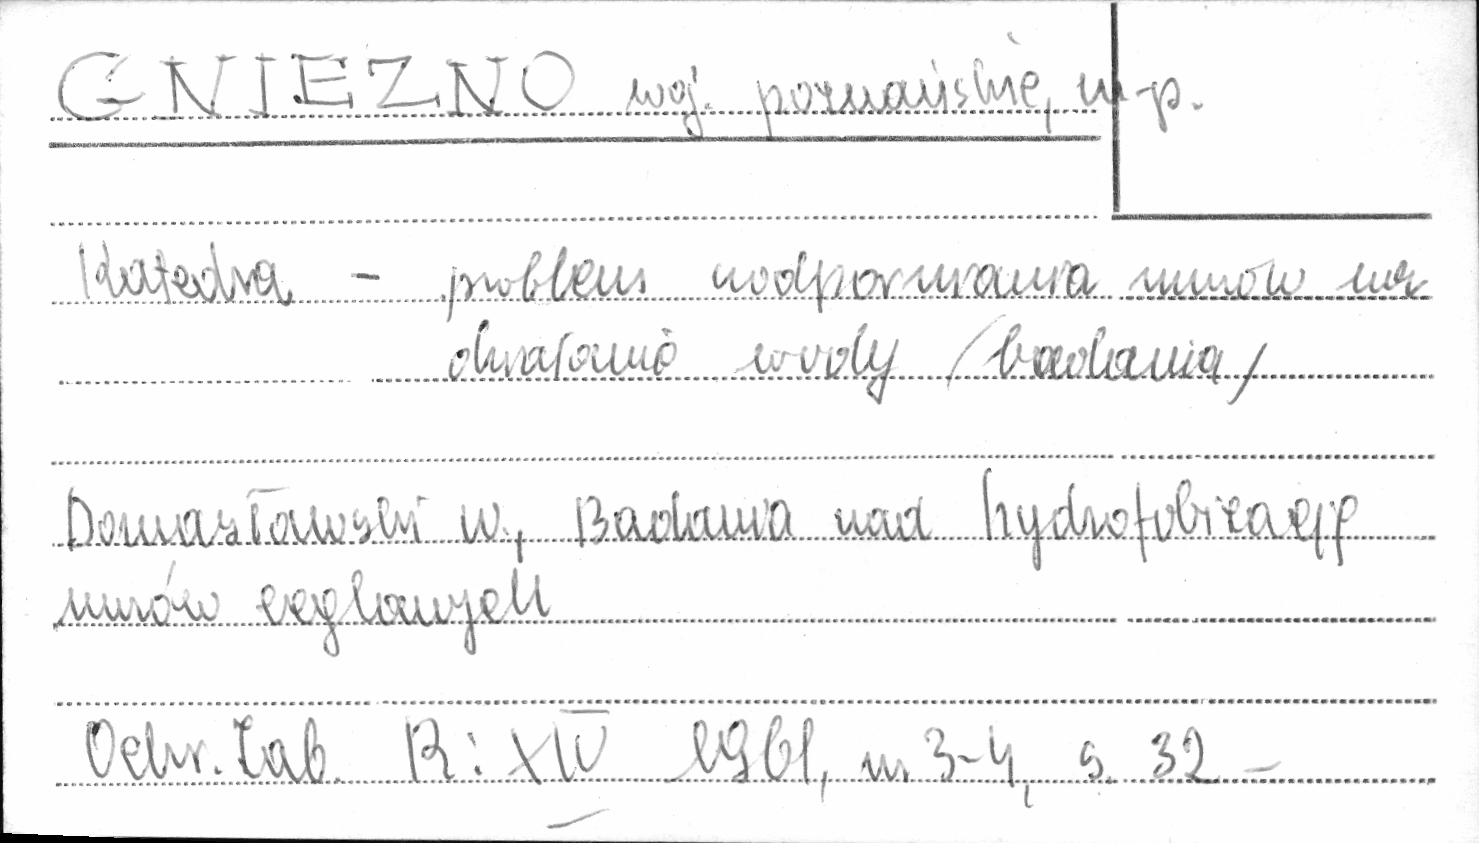 GNIEZNO woj. poznańskie, m-p.
Katedra - problem uodporniania murów na
działanie wody /badania/
Domasłowski W., Badania nad hydrofobizacją
murów ceglanych
Ochr. Zab. R: XIV 1961, nr 3-4, s. 32 -